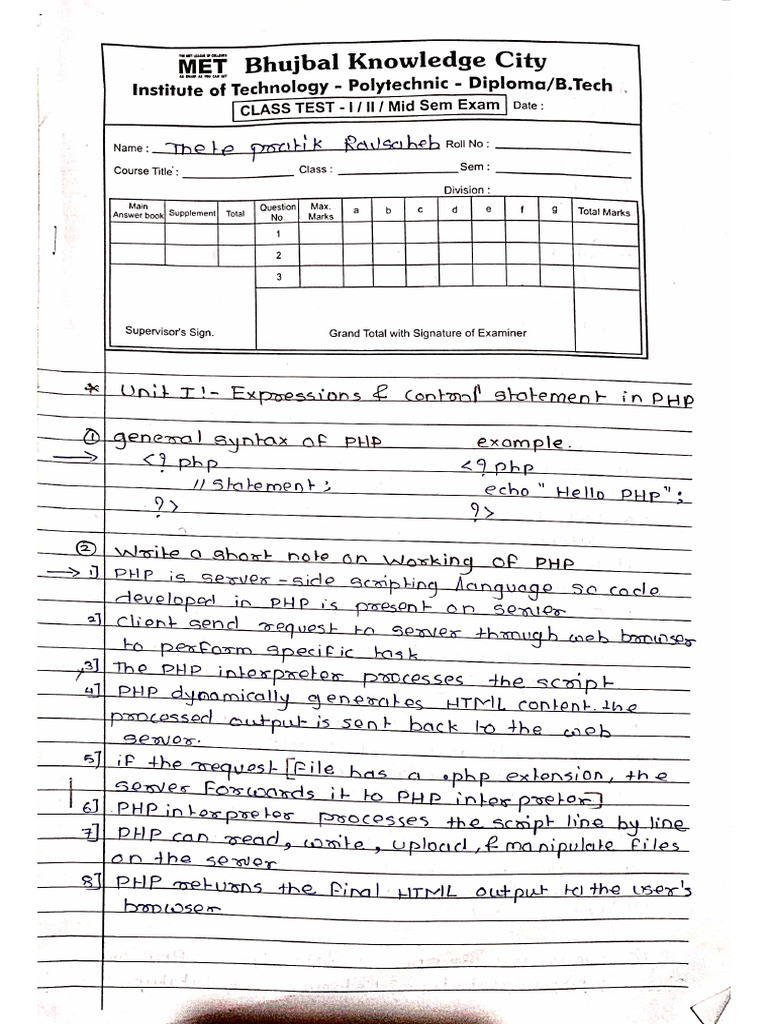 THE MET LEAGUE OF COLLEGES
MET Bhujbal Knowledge City
AS SHARP AS YOU CAN GET
Institute of Technology - Polytechnic - Diploma/B.Tech
CLASS TEST - I / II / Mid Sem Exam Date :
Name : Thete pratik Ravsaheb Roll No :
Course Title : Class : Sem :
Division :
Main Answer book Supplement Total Question No Max. Marks a b c d e f g Total Marks
1
2
3
Supervisor's Sign. Grand Total with Signature of Examiner
* Unit I :- Expressions & control statement in PHP
① general syntax of PHP example.
→ <? php <? php
// statement; echo "Hello PHP";
?> ?>
② Write a short note on working of PHP
→ 1] PHP is server-side scripting language so code
developed in PHP is present on server
2] Client send request to server through web browser
to perform specific task
3] The PHP interpreter processes the script
4] PHP dynamically generates HTML content. the
processed output is sent back to the web
server.
5] if the request [file has a .php extension, the
server forwards it to PHP interpretor]
6] PHP interpreter processes the script line by line
7] PHP can read, write, upload, & manipulate files
on the server
8] PHP returns the final HTML output to the user's
browser